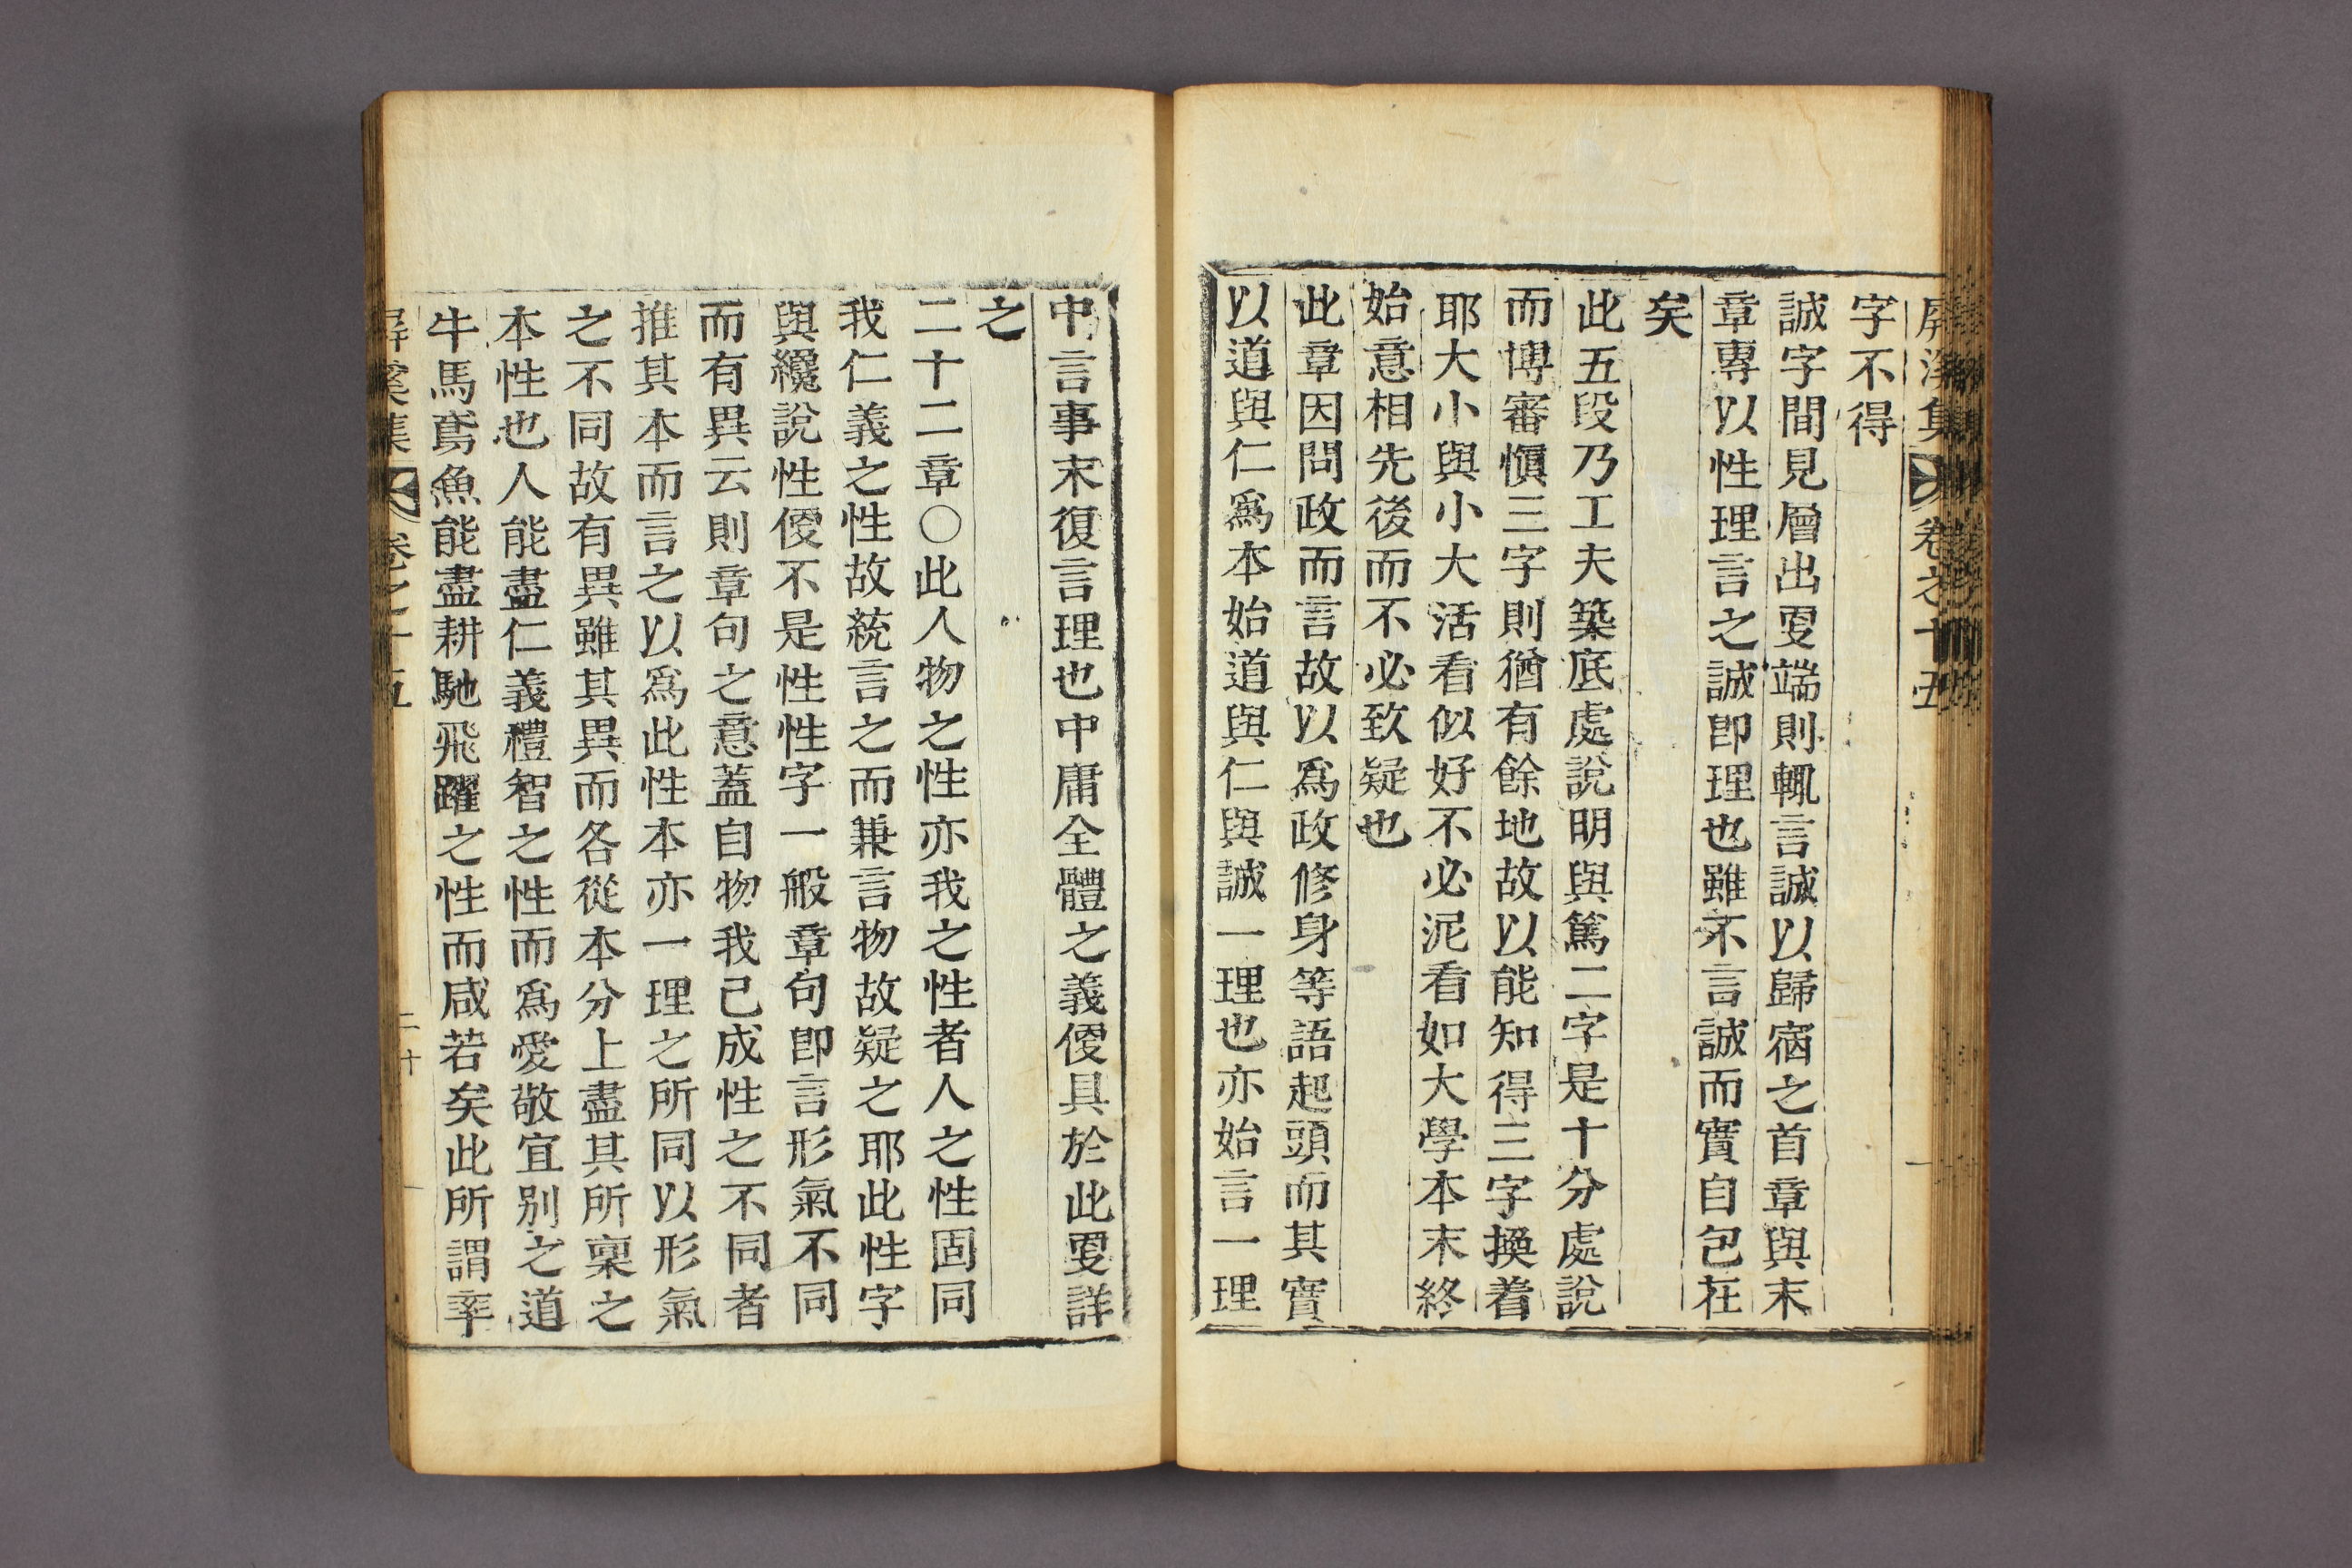 屏溪集 卷之十五
字不得
誠字間見層出更端則輒言誠以歸宿之首章與末
章專以性理言之誠卽理也雖不言誠而實自包在
矣
此五段乃工夫築底處說明與篤二字是十分處說
而博審愼三字則猶有餘地故以能知得三字換着
耶大小與小大活看似好不必泥看如大學本末終
始意相先後而不必致疑也
此章因問政而言故以爲政修身等語起頭而其實
以道與仁爲本始道與仁與誠一理也亦始言一理
中言事末復言理也中庸全體之義便具於此更詳
之
二十二章○此人物之性亦我之性者人之性固同
我仁義之性故統言之而兼言物故疑之耶此性字
與纔說性便不是性性字一般章句卽言形氣不同
而有異云則章句之意蓋自物我已成性之不同者
推其本而言之以爲此性本亦一理之所同以形氣
之不同故有異雖其異而各從本分上盡其所稟之
本性也人能盡仁義禮智之性而爲愛敬宜別之道
牛馬鳶魚能盡耕馳飛躍之性而咸若矣此所謂率
屏溪集 卷之十五 二十